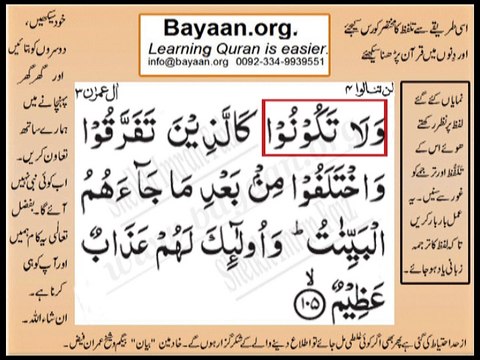 Bayaan.org.
Learning Quran is easier.
info@bayaan.org 0092-334-9939551
اسی طریقے سے تلفظ کا مختصر کورس کیجئے
اور دنوں میں قرآن پڑھنا سیکھئے
خود سیکھیں،
دوسروں کو بتائیں
اور گھر گھر
پہنچانے میں
ہمارے ساتھ
تعاون کریں۔
اب کوئی نبی نہیں
آئے گا۔ بفضل
تعالی یہ کام ہمیں
اور آپ کو ہی
کرنا ہے۔
ان شاء اللہ۔
لن تنالوا ۴
ال عمرٰن ۳
وَلَا تَكُوْنُوْا كَالَّذِيْنَ تَفَرَّقُوْا
وَاخْتَلَفُوْا مِنْۢ بَعْدِ مَا جَآءَهُمُ
الْبَيِّنٰتُ ؕ وَاُولٰٓئِكَ لَهُمْ عَذَابٌ
عَظِيْمٌ ۙ ۱۰۵
نمایاں کئے گئے
لفظ پر نظر رکھتے
ہوئے اس کے
تلفظ اور ترجمے کو
غور سے سنیں۔ یہ
عمل بار بار کریں
تاکہ لفظ کا ترجمہ
زبانی یاد ہو جائے۔
از حد احتیاط کی گئی ہے پھر بھی اگر کوئی غلطی مل جائے تو اطلاع دینے والے کے شکر گزار ہوں گے۔ خادمین "بیان" بیگم و شیخ عمران فیض۔